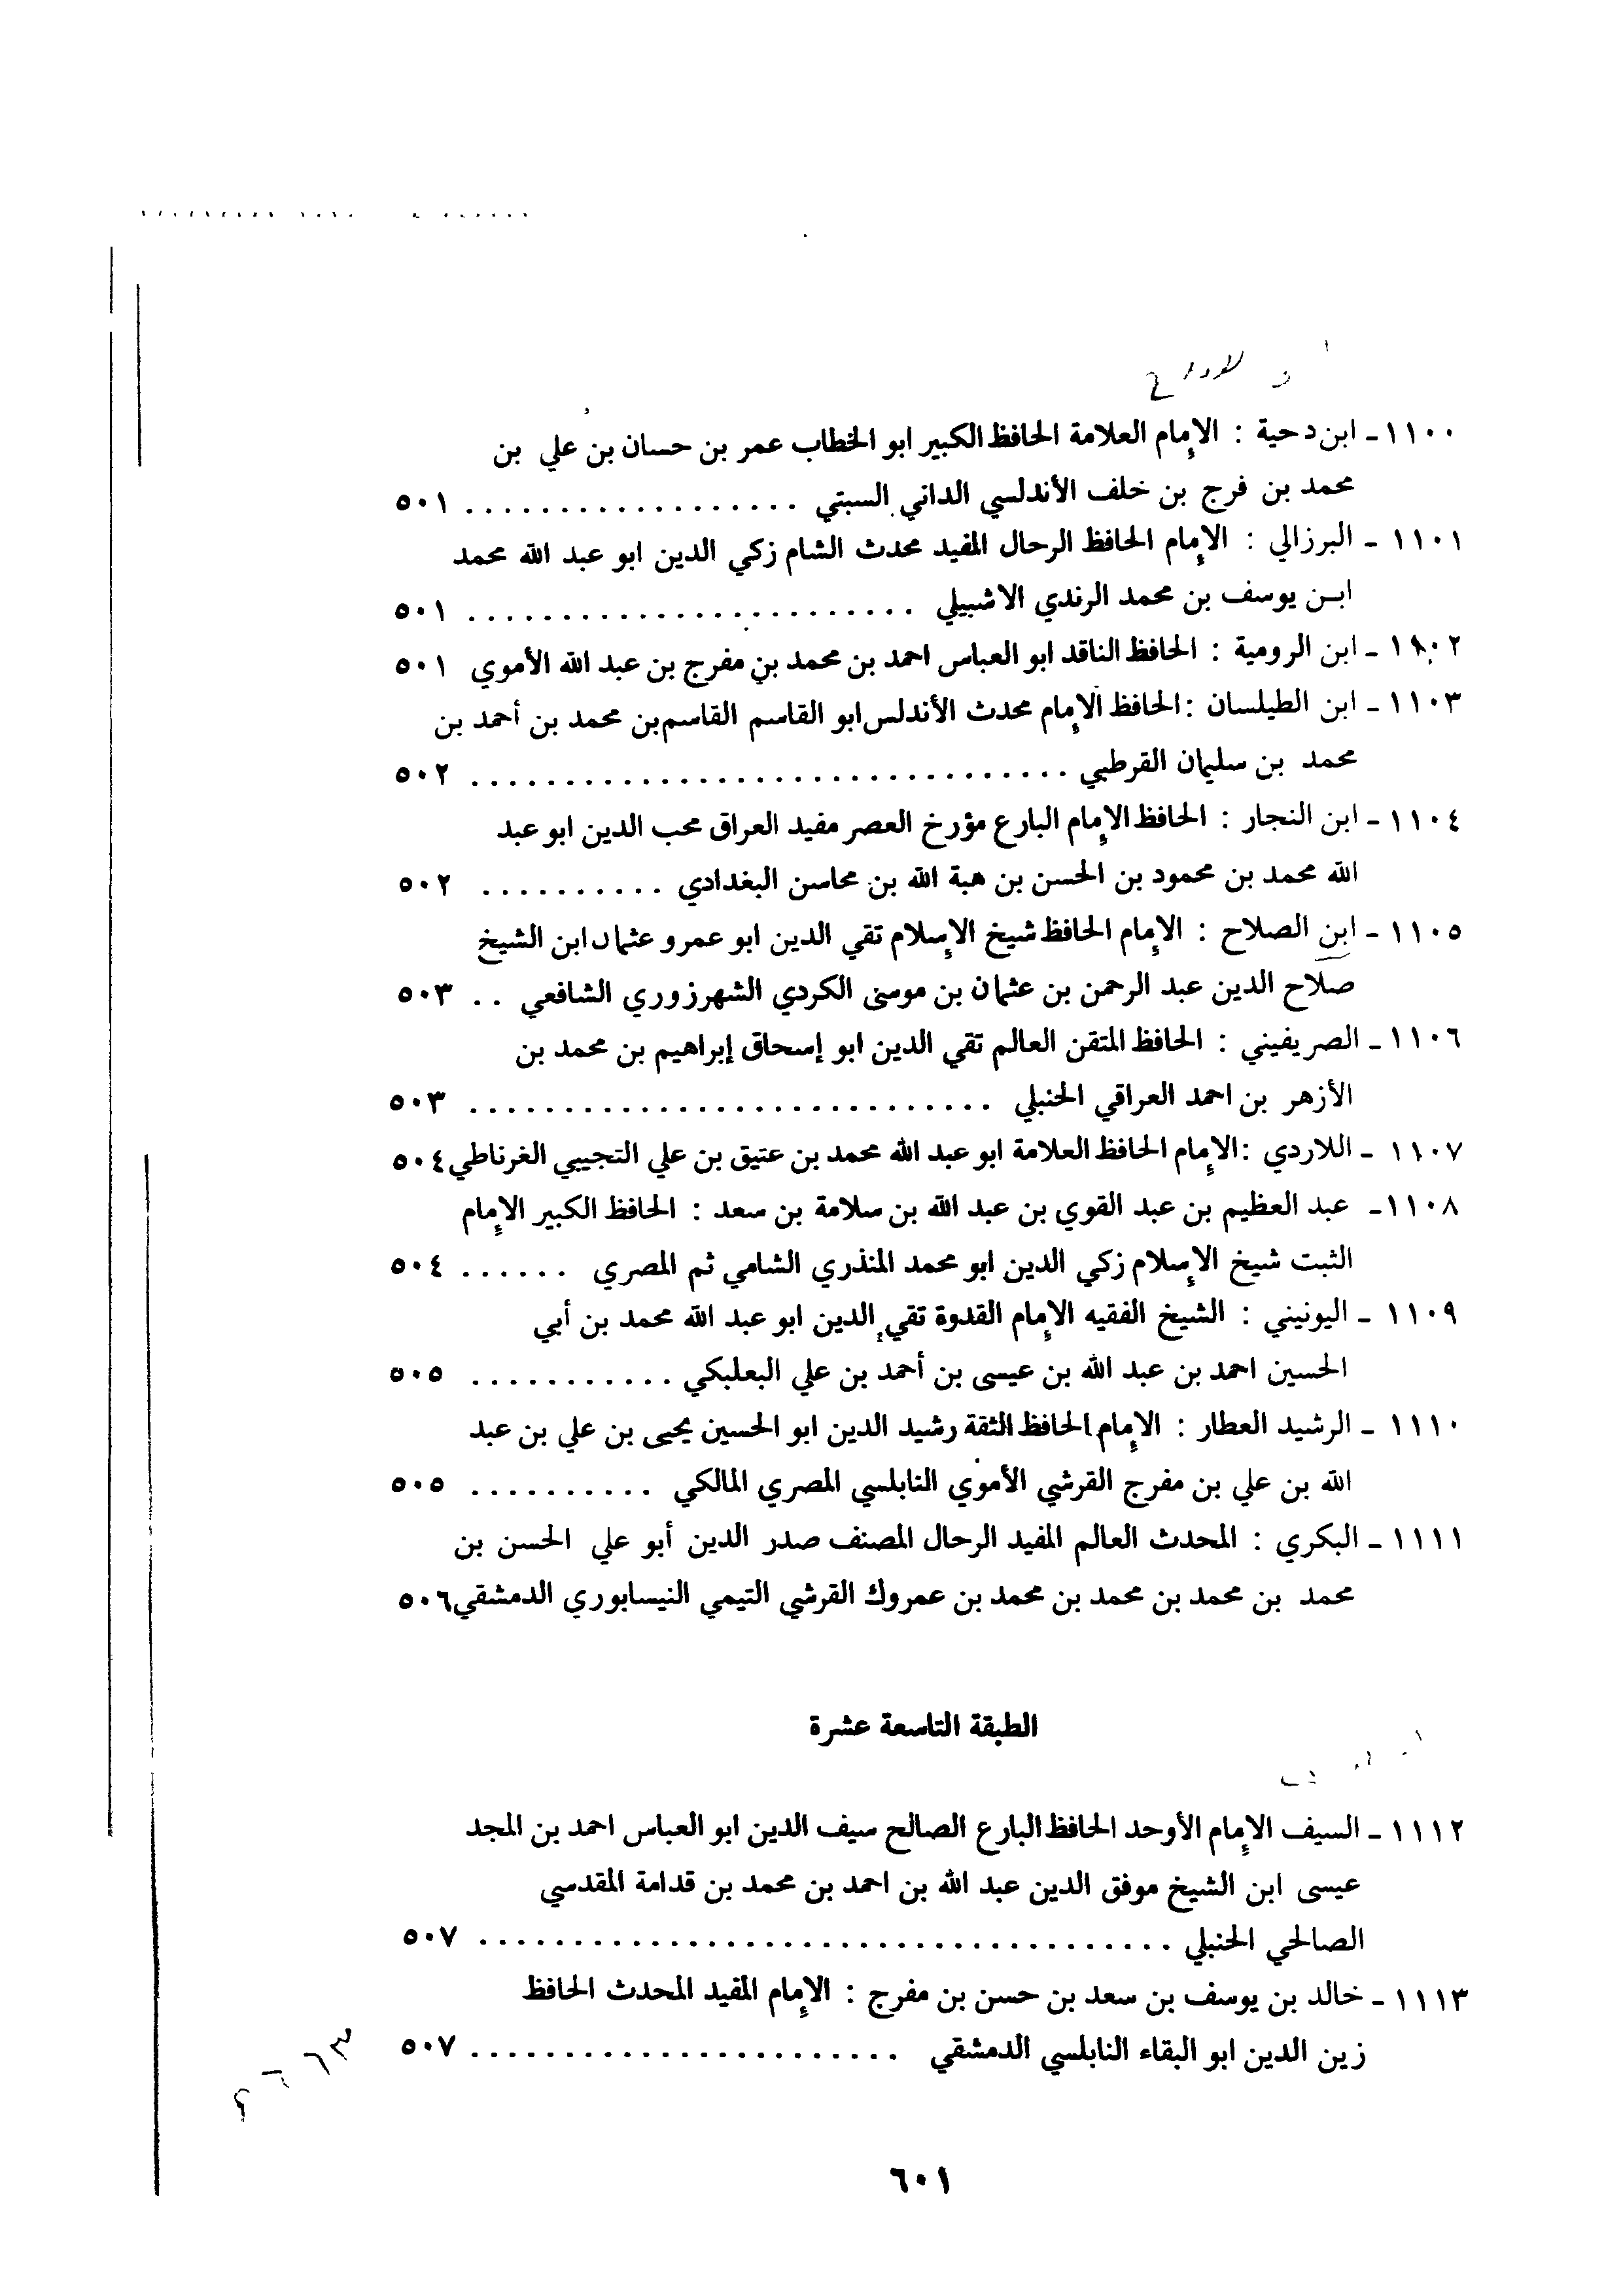 ١١٠٠ - ابن دحية : الإمام العلامة الحافظ الكبير ابو الخطاب عمر بن حسان بن علي بن
محمد بن فرج بن خلف الأندلسي الداني السبتي . . . . . . . . . . . . . . . . . . ٥٠١
١١٠١ - البرزالي : الإمام الحافظ الرحال المفيد محدث الشام زكي الدين ابو عبد الله محمد
ابن يوسف بن محمد الرندي الاشبيلي . . . . . . . . . . . . . . . . . . . . . . . . ٥٠١
١١٠٢ - ابن الرومية : الحافظ الناقد ابو العباس احمد بن محمد بن مفرج بن عبد الله الأموي ٥٠١
١١٠٣ - ابن الطيلسان : الحافظ الإمام محدث الأندلس ابو القاسم القاسم بن محمد بن أحمد بن
محمد بن سليمان القرطبي . . . . . . . . . . . . . . . . . . . . . . . . . . . . . . . . ٥٠٢
١١٠٤ - ابن النجار : الحافظ الإمام البارع مؤرخ العصر مفيد العراق محب الدين ابو عبد
الله محمد بن محمود بن الحسن بن هبة الله بن محاسن البغدادي . . . . . . . . . . ٥٠٢
١١٠٥ - ابن الصلاح : الإمام الحافظ شيخ الإسلام تقي الدين ابو عمرو عثمان ابن الشيخ
صلاح الدين عبد الرحمن بن عثمان بن موسى الكردي الشهرزوري الشافعي . . ٥٠٣
١١٠٦ - الصريفيني : الحافظ المتقن العالم تقي الدين ابو إسحاق إبراهيم بن محمد بن
الأزهر بن احمد العراقي الحنبلي . . . . . . . . . . . . . . . . . . . . . . . . . . . . ٥٠٣
١١٠٧ - اللاردي : الإمام الحافظ العلامة ابو عبد الله محمد بن عتيق بن علي التجيبي الغرناطي ٥٠٤
١١٠٨ - عبد العظيم بن عبد القوي بن عبد الله بن سلامة بن سعد : الحافظ الكبير الإمام
الثبت شيخ الإسلام زكي الدين ابو محمد المنذري الشامي ثم المصري . . . . . . ٥٠٤
١١٠٩ - اليونيني : الشيخ الفقيه الإمام القدوة تقي الدين ابو عبد الله محمد بن أبي
الحسين احمد بن عبد الله بن عيسى بن أحمد بن علي البعلبكي . . . . . . . . . . . ٥٠٥
١١١٠ - الرشيد العطار : الإمام الحافظ الثقة رشيد الدين ابو الحسين يحيى بن علي بن عبد
الله بن علي بن مفرج القرشي الأموي النابلسي المصري المالكي . . . . . . . . . . ٥٠٥
١١١١ - البكري : المحدث العالم المفيد الرحال المصنف صدر الدين أبو علي الحسن بن
محمد بن محمد بن محمد بن محمد بن عمروك القرشي التيمي النيسابوري الدمشقي ٥٠٦
الطبقة التاسعة عشرة
١١١٢ - السيف الإمام الأوحد الحافظ البارع الصالح سيف الدين ابو العباس احمد بن المجد
عيسى ابن الشيخ موفق الدين عبد الله بن احمد بن محمد بن قدامة المقدسي
الصالحي الحنبلي . . . . . . . . . . . . . . . . . . . . . . . . . . . . . . . . . . . . . ٥٠٧
١١١٣ - خالد بن يوسف بن سعد بن حسن بن مفرج : الإمام المفيد المحدث الحافظ
زين الدين ابو البقاء النابلسي الدمشقي . . . . . . . . . . . . . . . . . . . . . . . ٥٠٧
٦٠١